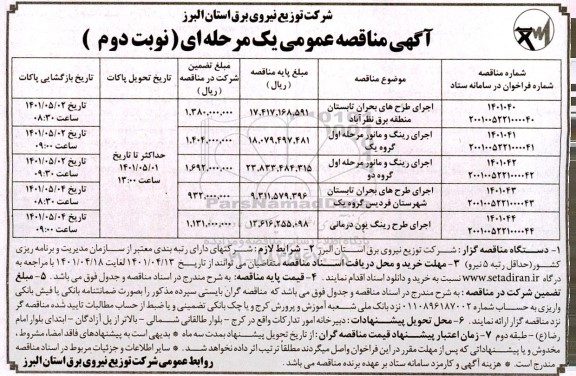 شرکت توزیع نیروی برق استان البرز
آگهی مناقصه عمومی یک مرحله ای (نوبت دوم)
شماره مناقصه شماره فراخوان در سامانه ستاد | موضوع مناقصه | مبلغ پایه مناقصه (ریال) | مبلغ تضمین شرکت در مناقصه (ریال) | تاریخ تحویل پاکات | تاریخ بازگشایی پاکات
۱۴۰۱-۴۰ ۲۰۰۱۰۰۵۲۲۱۰۰۰۰۴۰ | اجرای طرح های بحران تابستان منطقه برق نظرآباد | ۱۷,۴۱۷,۱۶۸,۵۹۱ | ۱,۳۸۰,۰۰۰,۰۰۰ | حداکثر تا تاریخ ۱۴۰۱/۰۵/۰۱ ساعت ۱۳:۰۰ | تاریخ ۱۴۰۱/۰۵/۰۲ ساعت ۰۸:۳۰
۱۴۰۱-۴۱ ۲۰۰۱۰۰۵۲۲۱۰۰۰۰۴۱ | اجرای رینگ و مانور مرحله اول گروه یک | ۱۸,۰۷۹,۴۹۷,۴۸۱ | ۱,۴۰۴,۰۰۰,۰۰۰ | تاریخ ۱۴۰۱/۰۵/۰۲ ساعت ۰۹:۰۰
۱۴۰۱-۴۲ ۲۰۰۱۰۰۵۲۲۱۰۰۰۰۴۲ | اجرای رینگ و مانور مرحله اول گروه دو | ۲۳,۸۳۳,۴۸۴,۳۱۵ | ۱,۶۹۲,۰۰۰,۰۰۰ | تاریخ ۱۴۰۱/۰۵/۰۲ ساعت ۰۹:۳۰
۱۴۰۱-۴۳ ۲۰۰۱۰۰۵۲۲۱۰۰۰۰۴۳ | اجرای طرح های بحران تابستان شهرستان فردیس گروه یک | ۹,۳۱۱,۵۷۹,۳۹۶ | ۹۳۲,۰۰۰,۰۰۰ | تاریخ ۱۴۰۱/۰۵/۰۴ ساعت ۰۸:۳۰
۱۴۰۱-۴۴ ۲۰۰۱۰۰۵۲۲۱۰۰۰۰۴۴ | اجرای طرح رینگ یون درمانی | ۱۳,۶۱۶,۲۵۵,۰۹۸ | ۱,۱۳۱,۰۰۰,۰۰۰ | تاریخ ۱۴۰۱/۰۵/۰۴ ساعت ۰۹:۰۰
۱- دستگاه مناقصه گزار: شرکت توزیع نیروی برق استان البرز ۲- شرایط لازم: شرکتهای دارای رتبه بندی معتبر از سازمان مدیریت و برنامه ریزی
کشور (حداقل رتبه ۵ نیرو) ۳- مهلت خرید و محل دریافت اسناد مناقصه متقاضیان می توانند از تاریخ ۱۴۰۱/۰۴/۱۳ لغایت ۱۴۰۱/۰۴/۱۸ با مراجعه به
درگاه www.setadiran.ir نسبت به خرید و دانلود اسناد اقدام نمایند. ۴- قیمت پایه مناقصه: به شرح مندرج در اسناد مناقصه و جدول فوق می باشد. ۵- مبلغ
تضمین شرکت در مناقصه: به شرح مندرج در اسناد مناقصه و جدول فوق می باشد که مناقصه گران بایستی سپرده مذکور را بصورت ضمانتنامه بانکی یا فیش بانکی
واریزی به حساب شماره ۱۱۰۸۹۶۱۸۷۰۰۲ نزد بانک ملی شعبه آموزش و پرورش کرج و یا چک بانکی تضمینی و یا ضبط از حساب مطالبات تایید شده مناقصه گر
نزد مناقصه گزار ارائه نمایند. ۶- محل تحویل پیشنهادات: دبیرخانه امور تدارکات واقع در کرج - بلوار طالقانی شمالی - بالاتر از پل آزادگان - ابتدای بلوار امام
رضا(ع) - طبقه دوم ۷- زمان اعتبار پیشنهاد قیمت مناقصه گران: از تاریخ تحویل پیشنهاد بمدت سه ماه * بدیهی است به پیشنهادهای فاقد امضا، مشروط،
مخدوش و یا پیشنهاداتی که پس از مهلت مقرر در این فراخوان واصل میگردند مطلقا ترتیب اثر داده نخواهد شد. * سایر اطلاعات و جزئیات مربوط در اسناد مناقصه
مندرج است. * هزینه آگهی و کارمزد سامانه ستاد بر عهده برنده مناقصه می باشد.
روابط عمومی شرکت توزیع نیروی برق استان البرز